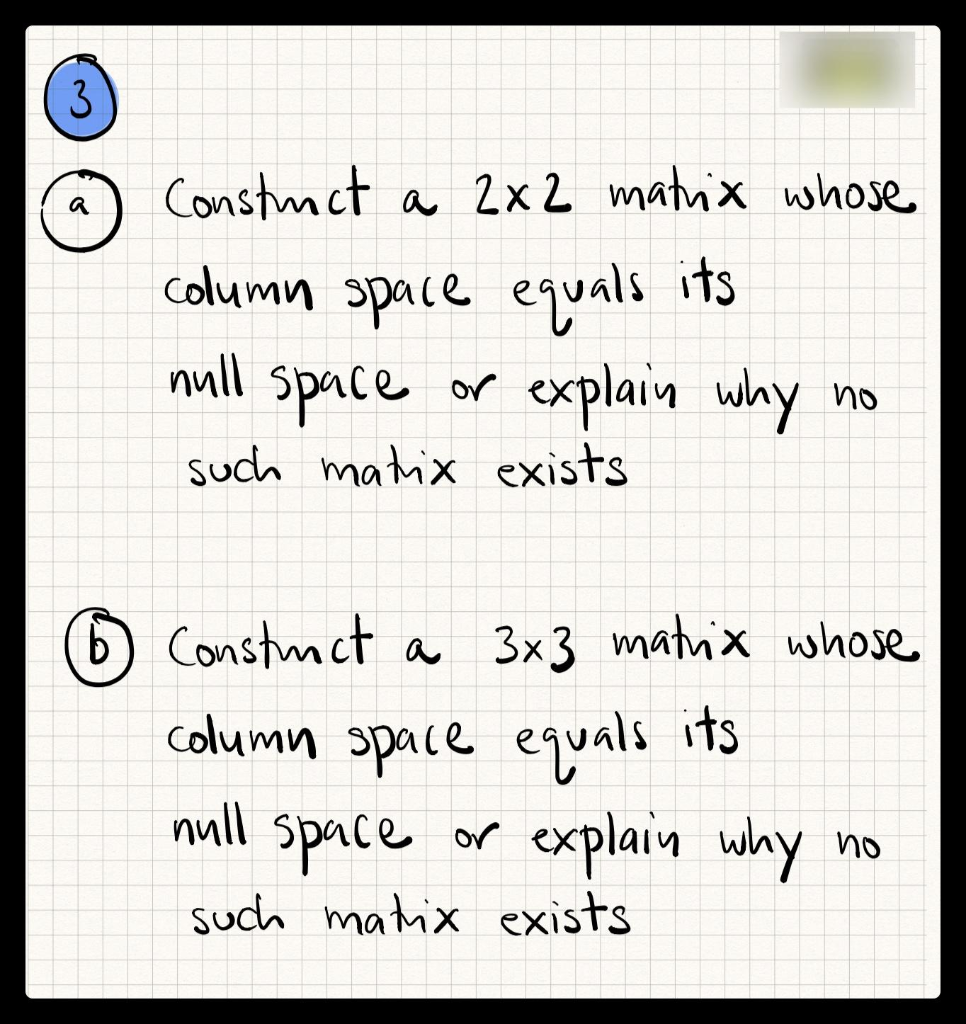 3
a Construct a 2x2 matrix whose
column space equals its
null space or explain why no
such matrix exists
b Construct a 3x3 matrix whose
column space equals its
null space or explain why no
such matrix exists